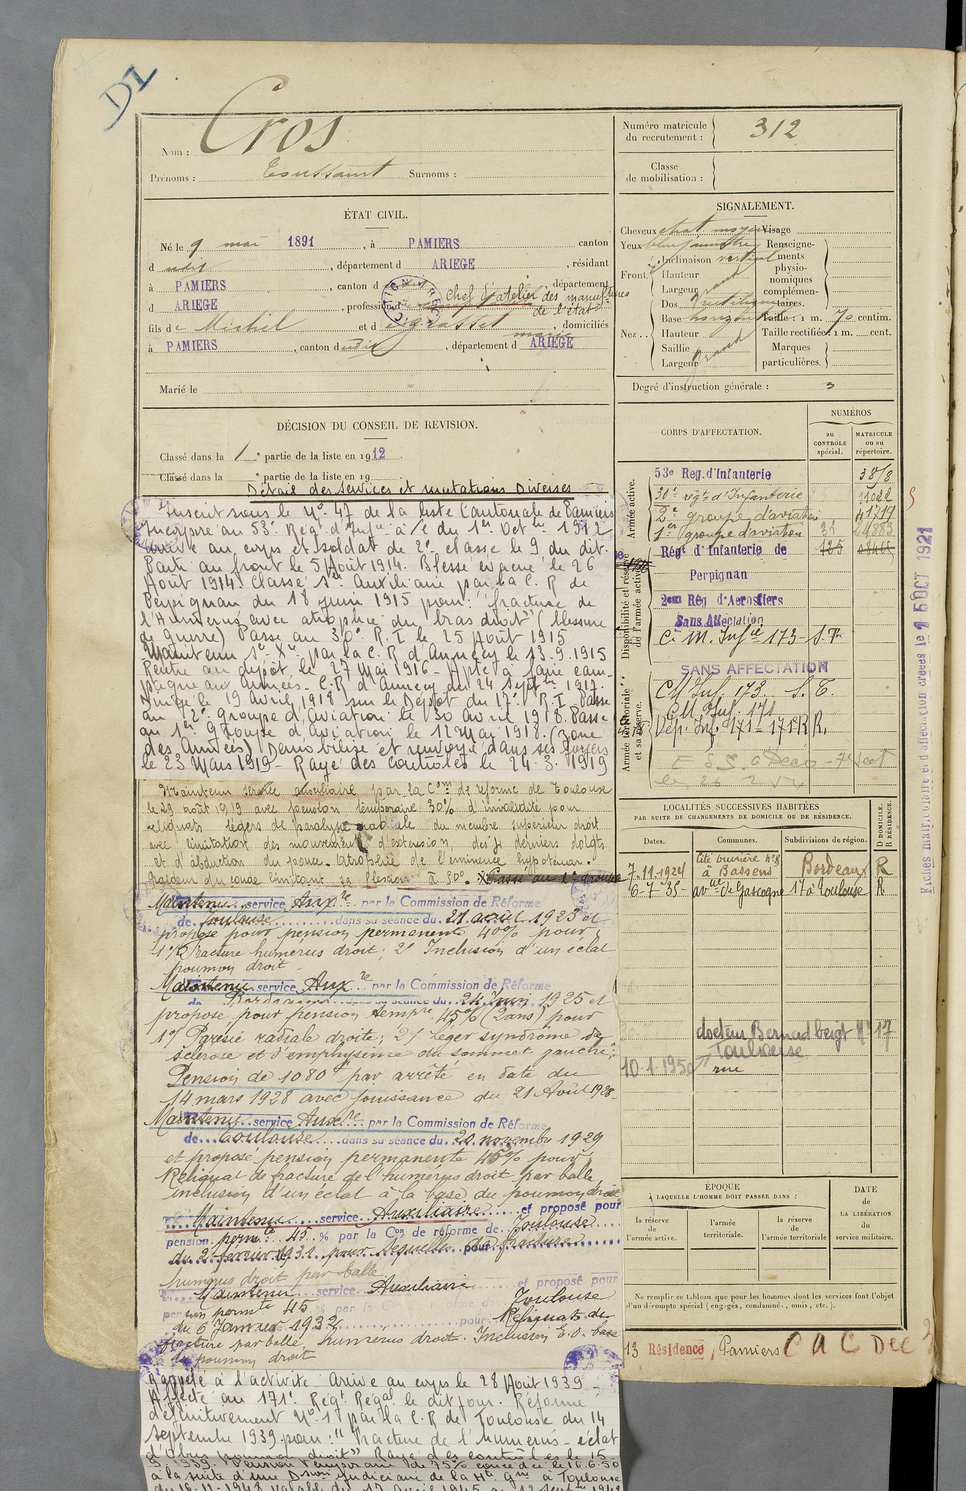 D1
Nom : Cros
Prénoms : Toussaint Surnoms :
Numéro matricule
du recrutement : 312
Classe
de mobilisation :
ÉTAT CIVIL.
Né le 9 mai 1891, à PAMIERS canton
d udit, département d ARIEGE, résidant
à PAMIERS, canton d udit, département
d ARIEGE, profession d Chef d'atelier des manufactures
de l'état
fils de Michel et d Grasset, domiciliés
à PAMIERS, canton dudit, département d ARIEGE
Marié le
SIGNALEMENT.
Cheveux chat. moyen Visage
Yeux Renseigne-
Inclinaison vertical ments
Front. Hauteur physio-
nomiques
Largeur grand complémen-
Dos rectiligne taires.
Base horizont Taille : 1 m. 70 centim.
Nez.. Hauteur Taille rectifiée 1 m. cent.
Saillie Marques
Largeur grand particulières.
Degré d'instruction générale : 3
DÉCISION DU CONSEIL DE REVISION.
Classé dans la 1e partie de la liste en 1912.
Classé dans la e partie de la liste en 19
Détail des services et mutations Diverses
Inscrit sous le No 47 de la liste Cantonale de Pamiers
Incorporé au 53e Régt d'Infie à c. du 1er Octbre 1912
arrivé au corps et soldat de 2e classe le 9 du dit.
Parti au front le 5 Août 1914. Blessé évacué le 26
Août 1914. Classé Sce Auxiliaire par la C. R de
Perpignan du 18 juin 1915 pour : "fracture de
l'Humérus avec atrophie du bras droit" (blessure
de guerre) Passé au 30e R. I le 25 Août 1915
Maintenu Sce Xre par la C. R d'Annecy le 13.9.1915
Rentré au dépôt le 27 Mai 1916 - Apte à faire cam-
pagne aux Armées - C.R d'Annecy du 24 Septbre 1917.
Dirigé le 19 Avril 1918 sur le Dépôt du 17e R I - Passé
au 2e Groupe d'Aviation le 30 Avril 1918. Passé
au 1er Groupe d'Aviation le 12 Mai 1918. (Zone
des Armées) Démobilisé et renvoyé dans ses foyers
le 23 Mars 1919 - Rayé des contrôles le 24.3.1919
Maintenu service auxiliaire par la Con de réforme de Toulouse
le 29 août 1919 avec pension temporaire 30% d'invalidité pour
reliquats légers de paralysie radiale du membre supérieur droit
avec limitation des mouvements d'extension des derniers doigts
et d'abduction du pouce. Atrophie de l'éminence hypothénar.
Raideur du coude limitant sa flexion à 30°. Passé au 1er groupe
Maintenu service Auxre par la Commission de Réforme
de Toulouse dans sa séance du 21 août 1923 et
proposé pour pension permanente 40% pour
1° Fracture humérus droit ; 2° Inclusion d'un éclat
poumon droit -
Maintenu service Auxre par la Commission de Réforme
de Bordeaux dans sa séance du 24 1925 et
proposé pour pension tempre 45% (2 ans) pour
1° Parésie radiale droite ; 2° Léger syndrôme de
sclérose et d'emphysème du sommet gauche ;
Pension de 1080f par arrêté en date du
14 mars 1928 avec jouissance du 21 Août 1928
Maintenu service Auxre par la Commission de Réforme
de Toulouse dans sa séance du 20 novembre 1929
et proposé pension permanente 45% pour
Reliquat de fracture de l'humérus droit par balle
inclusion d'un éclat à la base du poumon droit
Maintenu service Auxiliaire et proposé pour
pension permte 45 % par la Con de réforme de Toulouse
du 2 février 1932 pour séquelles de fracture
humérus droit par balle
Maintenu service Auxiliaire et proposé pour
pension permte 45 % par la C Toulouse
du 6 Janvier 1932 pour Reliquats de
fracture par balle, humérus droit. Inclusion E.O. base
du poumon droit
Rappelé à l'activité. Arrivé au corps le 28 Août 1939 -
Affecté au 171e Régt Régal le dit jour. Réformé
définitivement No 1 par la C.R de Toulouse du 14
septembre 1939 pour : "Fracture de l'humérus - éclat
d'obus poumon droit" Rayé des contrôles le 15
9 1939. Pension temporaire de 75% concédée le 16.6.50
à la suite d'une Dson judiciaire de la à Toulouse
du 16.11.1948 valable du 17 avril 1945 au 12 septbre 1948
CORPS D'AFFECTATION.
NUMÉROS
au
CONTRÔLE
spécial.
MATRICULE
ou au
répertoire.
Armée active.
Disponibilité et réserve
de l'armée active.
Armée territoriale
et sa réserve.
53e Reg. d'Infanterie 3818
30e régt d'Infanterie 11022
2e groupe d'aviation 41719
1er groupe d'aviation
Régt d'Infanterie de
Perpignan
2em Rég d'Aerostiers
Sans Affectation
C. M. Infie 173 - S. T.
SANS AFFECTATION
CM Inf. 173. S. T.
CM Inf. 171
Dép. Inf. 171 - 171e R R.
Fiches matriculaire et d'affection créées le 15 OCT 1921
LOCALITÉS SUCCESSIVES HABITÉES
PAR SUITE DE CHANGEMENTS DE DOMICILE OU DE RÉSIDENCE.
Dates. Communes. Subdivisions de région. D DOMICILE. R RÉSIDENCE.
7-11-1924 Cité ouvrière No 8
à Bassens Bordeaux R
6-7-35 avue de Gascogne 17 à Toulouse R
docteur Bernadbeigt No 17
Toulouse
10.1.1950 rue
ÉPOQUE
À LAQUELLE L'HOMME DOIT PASSER DANS :
la réserve
de
l'armée active.
l'armée
territoriale.
la réserve
de
l'armée territoriale
DATE
de
LA LIBÉRATION
du
service militaire.
Ne remplir ce tableau que pour les hommes dont les services font l'objet
d'un décompte spécial (engagés, condamnés, omis, etc.).
13 Résidence Pamiers C A C Dec